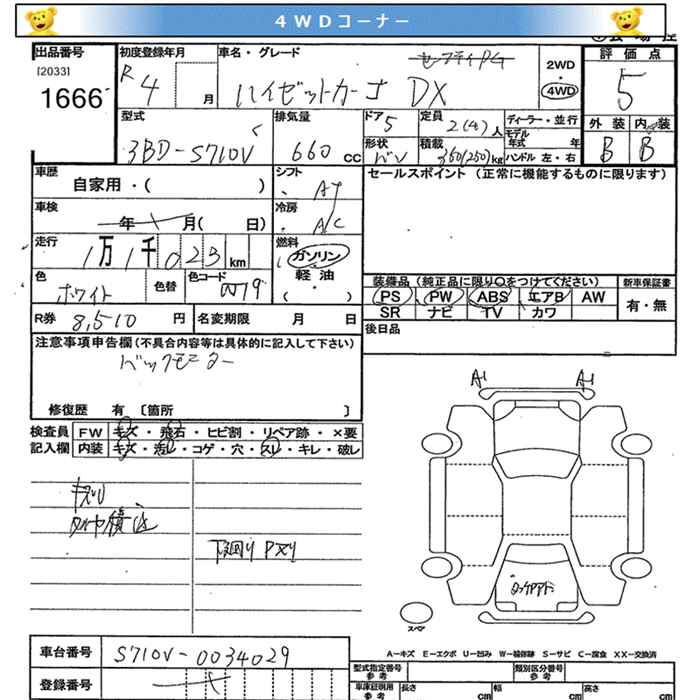 4WDコーナー
出品番号
[2033]
1666
初度登録年月
R4 月
車名・グレード
ハイゼットカーゴ DX
2WD
・
4WD
評価点
5
外装 内装
B B
型式
3BD-S710V
排気量
660 CC
ドア 5
形状 バン
定員 2(4)人
積載 350(250)kg
ディーラー・並行
モデル
年式 年
ハンドル 左・右
車歴
自家用・( )
シフト
AT
セールスポイント(正常に機能するものに限ります)
車検
年 月( 日)
冷房
A/C
走行
1万1千023km
燃料
ガソリン
・
軽油
・
( )
色
ホワイト
色替
色コード
W19
装備品(純正品に限り○をつけてください)
PS PW ABS エアB AW
SR ナビ TV カワ
新車保証書
有・無
R券 8,510 円
名変期限 月 日
後日品
注意事項申告欄(不具合内容等は具体的に記入して下さい)
バックモニター
修復歴 有 〔箇所 〕
検査員
記入欄
FW キズ・飛石・ヒビ割・リペア跡・×要
内装 キズ・汚レ・コゲ・穴・スレ・キレ・破レ
A1 A1
キズU
タイヤ積込
下廻りPスリ
スペア
A=キズ E=エクボ U=凹み W=補修跡 S=サビ C=腐食 XX=交換済
車台番号 S710V-0034029
登録番号
型式指定番号
参考
類別区分番号
参考
車庫証明用
参考
長さ cm
幅 cm
高さ cm